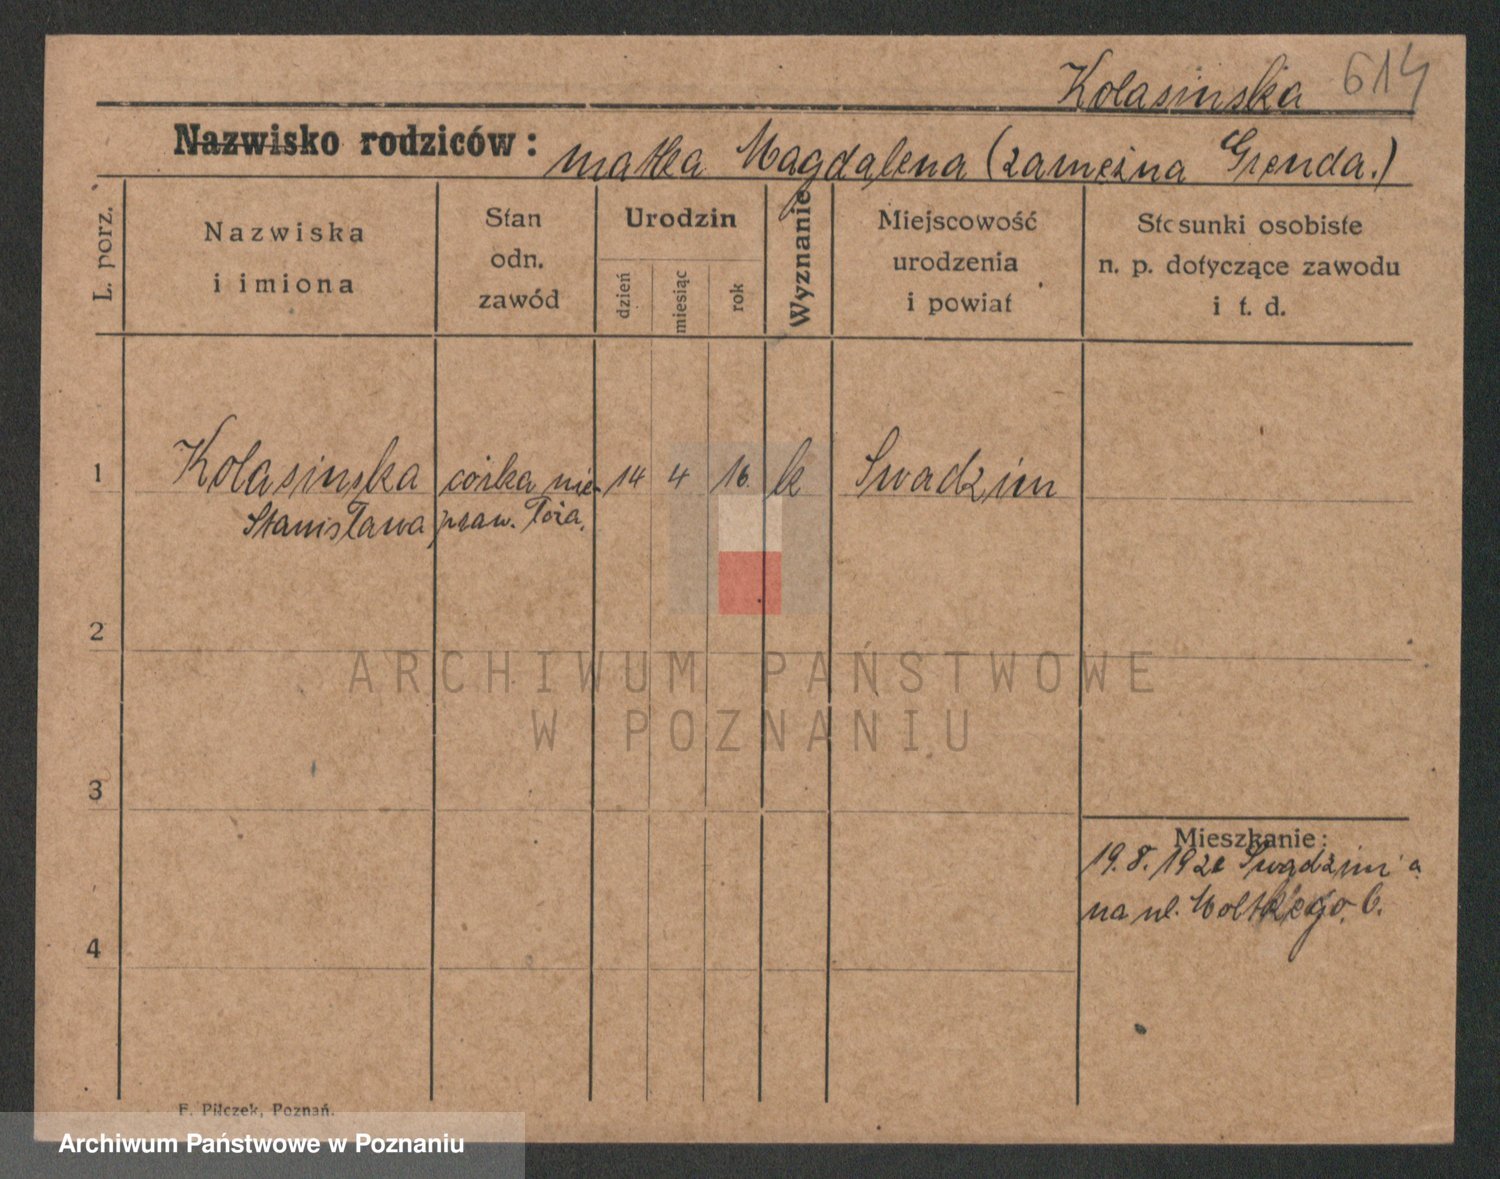 Kolasinska 614
Nazwisko rodziców: matka Magdalena (zamężna Grenda.)
L. porz.
Nazwiska
i imiona
Stan
odn.
zawód
Urodzin
dzień
miesiąc
rok
Wyznanie
Miejscowość
urodzenia
i powiat
Stosunki osobiste
n. p. dotyczące zawodu
i t. d.
1 Kolasinska córka nie- 14 4 16 k Swadzim
Stanisława praw. łoża.
2
3
4
Mieszkanie:
19. 8. 192 Swadzim
na ul. Moltkego. 6.
F. Pilczek, Poznań.
ARCHIWUM PAŃSTWOWE
W POZNANIU
Archiwum Państwowe w Poznaniu